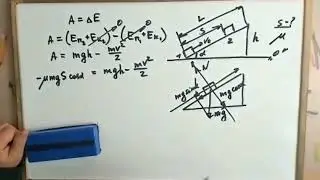 A = ΔE
A = (Eп₂ + Eк₂) - (Eп₁ + Eк₁)
A = mgh - mv²/2
-μmgS cosα = mgh - mv²/2
L
S
v
α
2
h
S - ?
μ
0
N
mg sinα
mg cosα
mg